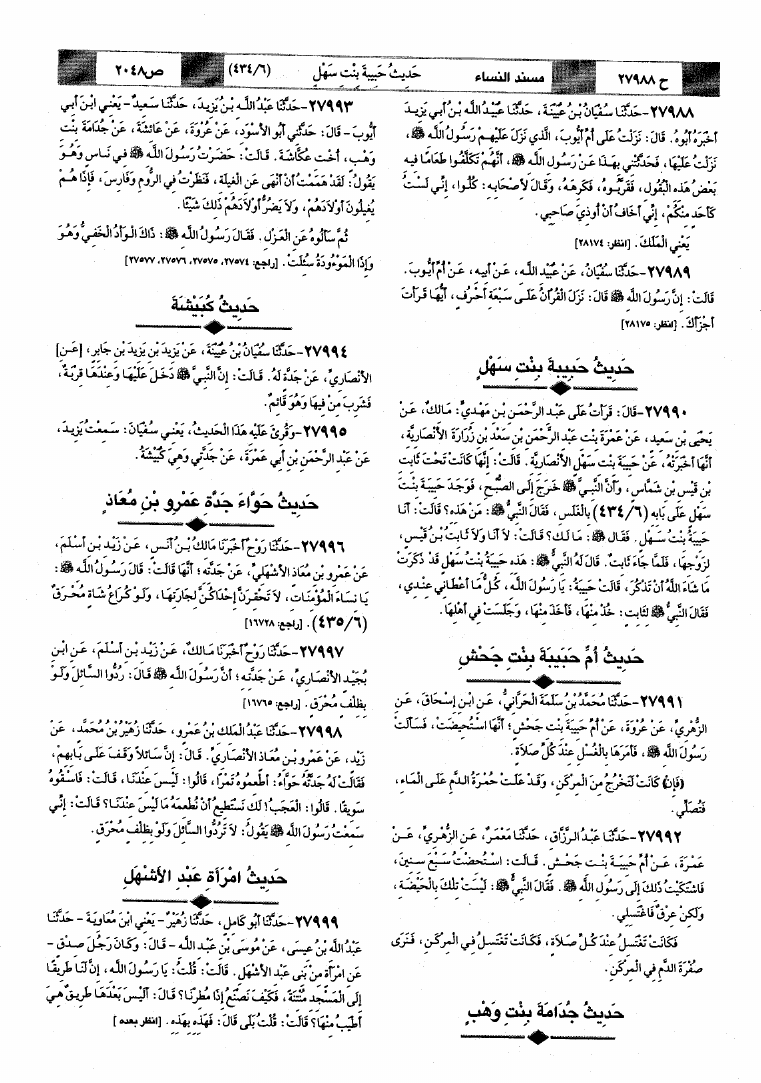 ح ٢٧٩٨٨ مسند النساء حَدِيثُ حَبِيبَةَ بِنْتِ سَهْلٍ (٤٣٤/٦) ص٢٠٤٨
٢٧٩٨٨-حَدَّثَنَا سُفْيَانُ بْنُ عُيَيْنَةَ، حَدَّثَنَا عُبَيْدُ اللَّه بْنُ أَبِي يَزِيدَ
أَخْبَرَهُ أَبُوهُ. قَالَ: نَزَلْتُ عَلَى أُمِّ أَيُّوبَ، الَّذِي نَزَلَ عَلَيْهِمْ رَسُولُ اللَّه ﷺ،
نَزَلْتُ عَلَيْهَا، فَحَدَّثَتْنِي بِهَذَا عَنْ رَسُولِ اللَّه ﷺ، أَنَّهُمْ تَكَلَّفُوا طَعَامًا فِيه
بَعْضُ هَذِهِ الْبُقُولِ، فَقَرَّبُوهُ، فَكَرِهَهُ، وَقَالَ لأَصْحَابِهِ: كُلُوا، إِنِّي لَسْتُ
كَأَحَدٍ مِنْكُمْ، إِنِّي أَخَافُ أَنْ أُوذِيَ صَاحِبِي.
يَعْنِي الْمَلَكَ. [انظر: ٢٨١٧٤]
٢٧٩٨٩-حَدَّثَنَا سُفْيَانُ، عَنْ عُبَيْدِ اللَّه، عَنْ أَبِيهِ، عَنْ أُمِّ أَيُّوبَ.
قَالَتْ: إِنَّ رَسُولَ اللَّه ﷺ قَالَ: نَزَلَ الْقُرْآنُ عَلَى سَبْعَةِ أَحْرُفٍ، أَيُّهَا قَرَأْتَ
أَجْزَأَكَ. [انظر: ٢٨١٧٥]
حَدِيثُ حَبِيبَةَ بِنْتِ سَهْلٍ
٢٧٩٩٠-قَالَ: قَرَأْتُ عَلَى عَبْدِ الرَّحْمَنِ بْنِ مَهْدِيٍّ: مَالِكٌ، عَنْ
يَحْيَى بْنِ سَعِيدٍ، عَنْ عَمْرَةَ بِنْتِ عَبْدِ الرَّحْمَنِ بْنِ سَعْدِ بْنِ زُرَارَةَ الأَنْصَارِيَّةِ،
أَنَّهَا أَخْبَرَتْهُ، عَنْ حَبِيبَةَ بِنْتِ سَهْلٍ الأَنْصَارِيَّةِ. قَالَتْ: إِنَّهَا كَانَتْ تَحْتَ ثَابِتِ
بْنِ قَيْسِ بْنِ شَمَّاسٍ، وَأَنَّ النَّبِيَّ ﷺ خَرَجَ إِلَى الصُّبْحِ، فَوَجَدَ حَبِيبَةَ بِنْتَ
سَهْلٍ عَلَى بَابِهِ (٤٣٤/٦) بِالْغَلَسِ، فَقَالَ النَّبِيُّ ﷺ: مَنْ هَذِه؟ قَالَتْ: أَنَا
حَبِيبَةُ بِنْتُ سَهْلٍ. فَقَالَ ﷺ: مَا لَكِ؟ قَالَتْ: لاَ أَنَا وَلاَ ثَابِتُ بْنُ قَيْسٍ،
لِزَوْجِهَا، فَلَمَّا جَاءَ ثَابِتٌ. قَالَ لَهُ النَّبِيُّ ﷺ: هَذِهِ حَبِيبَةُ بِنْتُ سَهْلٍ قَدْ ذَكَرَتْ
مَا شَاءَ اللَّهُ أَنْ تَذْكُرَ، قَالَتْ حَبِيبَةُ: يَا رَسُولَ اللَّه، كُلُّ مَا أَعْطَانِي عِنْدِي،
فَقَالَ النَّبِيُّ ﷺ لِثَابِتٍ: خُذْ مِنْهَا، فَأَخَذَ مِنْهَا، وَجَلَسَتْ فِي أَهْلِهَا.
حَدِيثُ أُمِّ حَبَيبَةَ بِنْتِ جَحْشٍ
٢٧٩٩١-حَدَّثَنَا مُحَمَّدُ بْنُ سَلَمَةَ الْحَرَّانِيُّ، عَنِ ابْنِ إِسْحَاقَ، عَنِ
الزُّهْرِيِّ، عَنْ عُرْوَةَ، عَنْ أُمِّ حَبِيبَةَ بِنْتِ جَحْشٍ؛ أَنَّهَا اسْتُحِيضَتْ، فَسَأَلَتْ
رَسُولَ اللَّه ﷺ، فَأَمَرَهَا بِالْغُسْلِ عِنْدَ كُلِّ صَلاَةٍ.
(فَإِنْ) كَانَتْ لَتَخْرُجُ مِنَ الْمِرْكَنِ، وَقَدْ عَلَتْ حُمْرَةُ الدَّمِ عَلَى الْمَاءِ،
فَتُصَلِّي.
٢٧٩٩٢-حَدَّثَنَا عَبْدُ الرَّزَّاقِ، حَدَّثَنَا مَعْمَرٌ، عَنِ الزُّهْرِيِّ، عَنْ
عَمْرَةَ، عَنْ أُمِّ حَبِيبَةَ بِنْتِ جَحْشٍ. قَالَتِ: اسْتُحِضْتُ سَبْعَ سِنِينَ،
فَاشْتَكَيْتُ ذَلِكَ إِلَى رَسُولِ اللَّه ﷺ. فَقَالَ النَّبِيُّ ﷺ: لَيْسَتْ تِلْكِ بِالْحَيْضَةِ،
وَلَكِنْ عِرْقٌ فَاغْتَسِلِي.
فَكَانَتْ تَغْتَسِلُ عِنْدَ كُلِّ صَلاَةٍ، فَكَانَتْ تَغْتَسِلُ فِي الْمِرْكَنِ، فَنَرَى
صُفْرَةَ الدَّمِ فِي الْمِرْكَنِ.
حَدِيثُ جُدَامَةَ بِنْتِ وَهْبٍ
٢٧٩٩٣-حَدَّثَنَا عَبْدُ اللَّه بْنُ يَزِيدَ، حَدَّثَنَا سَعِيدٌ- يَعْنِي ابْنَ أَبِي
أَيُّوبَ- قَالَ: حَدَّثَنِي أَبُو الأَسْوَدِ، عَنْ عُرْوَةَ، عَنْ عَائِشَةَ، عَنْ جُدَامَةَ بِنْتِ
وَهْبٍ، أُخْتِ عُكَّاشَةَ. قَالَتْ: حَضَرْتُ رَسُولَ اللَّه ﷺ فِي نَاسٍ وَهُوَ
يَقُولُ: لَقَدْ هَمَمْتُ أَنْ أَنْهَى عَنِ الْغِيلَةِ، فَنَظَرْتُ فِي الرُّومِ وَفَارِسَ، فَإِذَا هُمْ
يُغِيلُونَ أَوْلاَدَهُمْ، وَلاَ يَضُرُّ أَوْلاَدَهُمْ ذَلِكَ شَيْئًا.
ثُمَّ سَأَلُوهُ عَنِ الْعَزْلِ. فَقَالَ رَسُولُ اللَّه ﷺ: ذَاكَ الْوَأْدُ الْخَفِيُّ وَهُوَ
وَإِذَا الْمَوْءُودَةُ سُئِلَتْ. [راجع: ٢٧٥٧٤، ٢٧٥٧٥، ٢٧٥٧٦، ٢٧٥٧٧]
حَدِيثُ كُبَيْشَةَ
٢٧٩٩٤-حَدَّثَنَا سُفْيَانُ بْنُ عُيَيْنَةَ، عَنْ يَزِيدَ بْنِ يَزِيدَ بْنِ جَابِرٍ، [عَنِ]
الأَنْصَارِيِّ، عَنْ جَدَّةٍ لَهُ. قَالَتْ: إِنَّ النَّبِيَّ ﷺ دَخَلَ عَلَيْهَا وَعِنْدَهَا قِرْبَةٌ،
فَشَرِبَ مِنْ فِيهَا وَهُوَ قَائِمٌ.
٢٧٩٩٥-وَقُرِئَ عَلَيْهِ هَذَا الْحَدِيثُ، يَعْنِي سُفْيَانَ: سَمِعْتُ يَزِيدَ،
عَنْ عَبْدِ الرَّحْمَنِ بْنِ أَبِي عَمْرَةَ، عَنْ جَدَّتِي وَهِيَ كُبَيْشَةُ.
حَدِيثُ حَوَّاءَ جَدَّةِ عَمْرِو بْنِ مُعَاذٍ
٢٧٩٩٦-حَدَّثَنَا رَوْحٌ أَخْبَرَنَا مَالِكُ بْنُ أَنَسٍ، عَنْ زَيْدِ بْنِ أَسْلَمَ،
عَنْ عَمْرِو بْنِ مُعَاذٍ الأَشْهَلِيِّ، عَنْ جَدَّتِهِ؛ أَنَّهَا قَالَتْ: قَالَ رَسُولُ اللَّه ﷺ:
يَا نِسَاءَ الْمُؤْمِنَاتِ، لاَ تَحْقِرَنَّ إِحْدَاكُنَّ لِجَارَتِهَا، وَلَوْ كُرَاعُ شَاةٍ مُحْرَقٌ
(٤٣٥/٦). [راجع: ١٦٧٢٨]
٢٧٩٩٧-حَدَّثَنَا رَوْحٌ أَخْبَرَنَا مَالِكٌ، عَنْ زَيْدِ بْنِ أَسْلَمَ، عَنِ ابْنِ
بُجَيْدٍ الأَنْصَارِيِّ، عَنْ جَدَّتِهِ؛ أَنَّ رَسُولَ اللَّه ﷺ قَالَ: رُدُّوا السَّائِلَ وَلَوْ
بِظِلْفٍ مُحْرَقٍ. [راجع: ١٦٧٦٥]
٢٧٩٩٨-حَدَّثَنَا عَبْدُ الْمَلِكِ بْنُ عَمْرٍو، حَدَّثَنَا زُهَيْرُ بْنُ مُحَمَّدٍ، عَنْ
زَيْدٍ، عَنْ عَمْرِو بْنِ مُعَاذٍ الأَنْصَارِيِّ. قَالَ: إِنَّ سَائِلاً وَقَفَ عَلَى بَابِهِمْ،
فَقَالَتْ لَهُ جَدَّتُهُ حَوَّاءُ: أَطْعِمُوهُ تَمْرًا، قَالُوا: لَيْسَ عِنْدَنَا، قَالَتْ: فَاسْقُوهُ
سَوِيقًا. قَالُوا: الْعَجَبُ! لَكِ نَسْتَطِيعُ أَنْ نُطْعِمَهُ مَا لَيْسَ عِنْدَنَا؟ قَالَتْ: إِنِّي
سَمِعْتُ رَسُولَ اللَّه ﷺ يَقُولُ: لاَ تَرُدُّوا السَّائِلَ وَلَوْ بِظِلْفٍ مُحْرَقٍ.
حَدِيثُ امْرَأَةِ عَبْدِ الأَشْهَلِ
٢٧٩٩٩-حَدَّثَنَا أَبُو كَامِلٍ، حَدَّثَنَا زُهَيْرٌ- يَعْنِي ابْنَ مُعَاوِيَةَ- حَدَّثَنَا
عَبْدُ اللَّه بْنُ عِيسَى، عَنْ مُوسَى بْنِ عَبْدِ اللَّه- قَالَ: وَكَانَ رَجُلَ صِدْقٍ-
عَنِ امْرَأَةٍ مِنْ بَنِي عَبْدِ الأَشْهَلِ. قَالَتْ: قُلْتُ: يَا رَسُولَ اللَّه، إِنَّ لَنَا طَرِيقًا
إِلَى الْمَسْجِدِ مُنْتِنَةً، فَكَيْفَ نَصْنَعُ إِذَا مُطِرْنَا؟ قَالَ: أَلَيْسَ بَعْدَهَا طَرِيقٌ هِيَ
أَطْيَبُ مِنْهَا؟ قَالَتْ: قُلْتُ بَلَى قَالَ: فَهَذِهِ بِهَذِهِ. [انظر بعده]